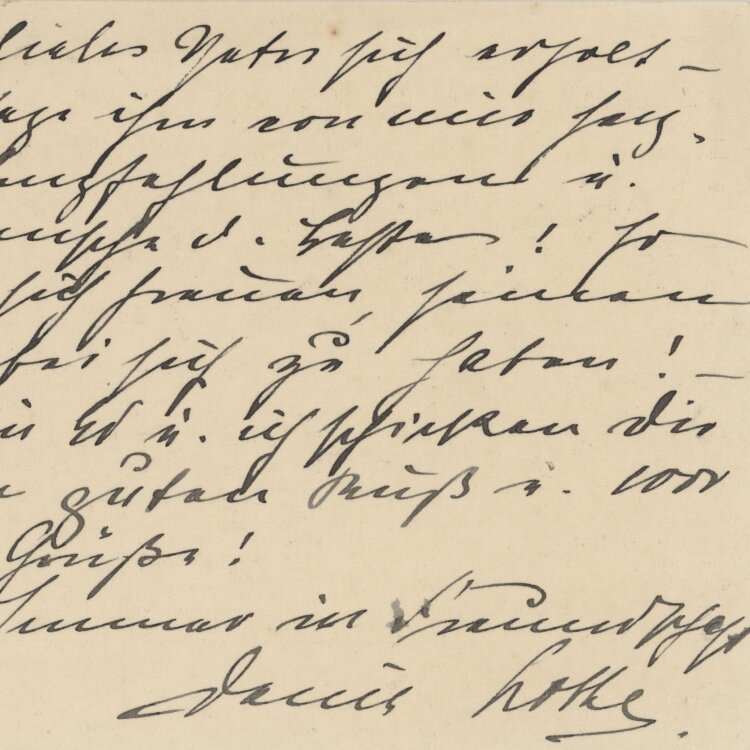 liebes Vater sich erholt –
sage ihm von mir herz.
Empfehlungen u.
Wünsche d. Beste! Er
sich freuen, seinen
bei sich zu haben! –
Ed u. ich schicken Dir
guten Kuß u. 1000
Grüße!
Immer in Freundschaft
Deine Lotte.